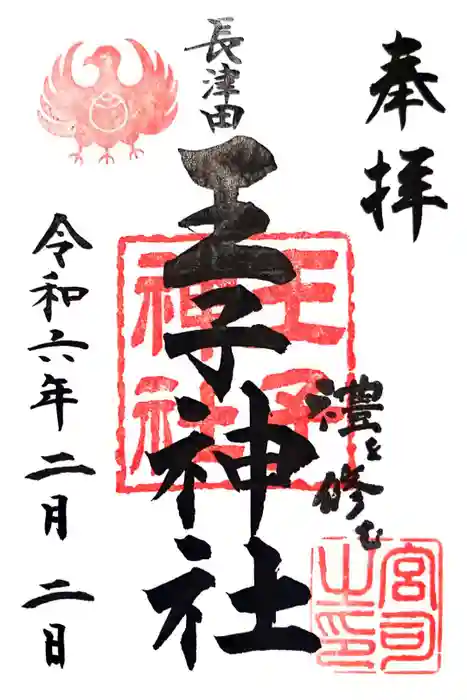 奉拝
禮を修む
長津田
王子神社
令和六年二月二日
王子神社
宮司之印